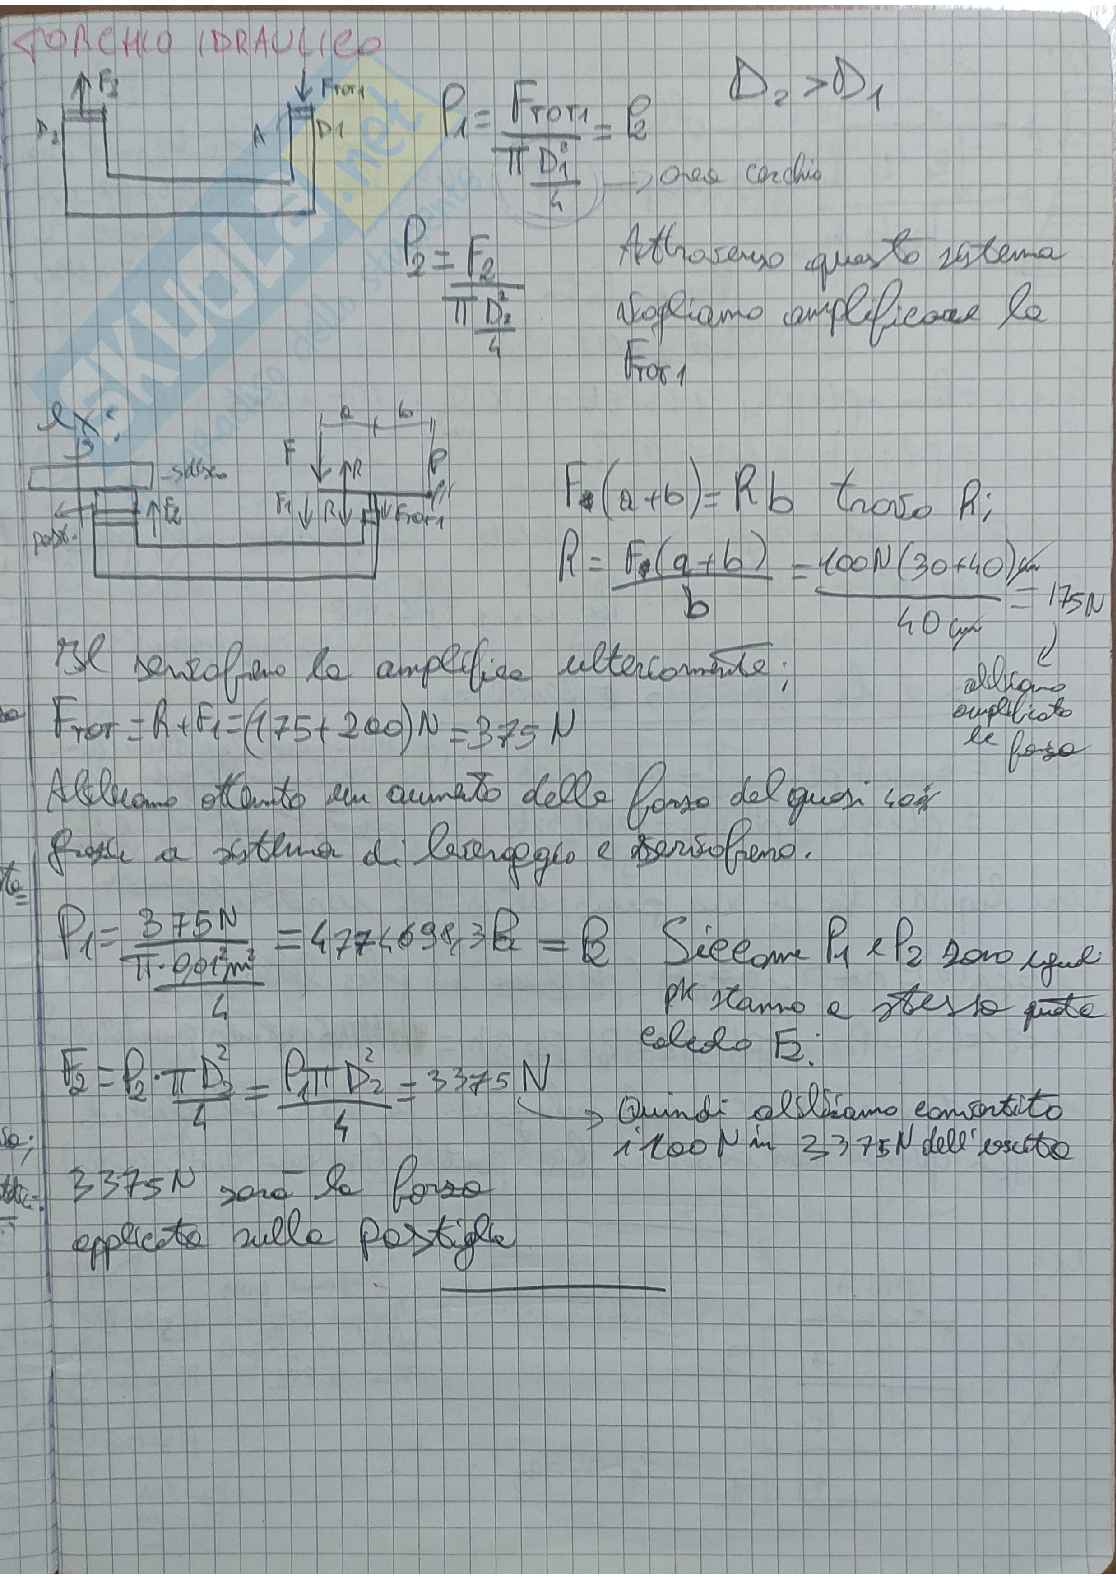 TORCHIO IDRAULICO
F2 FTOT1 D2 > D1
D2 A D1 P1 = FTOT1 / (π D1²/4) = P2
→ area cerchio
P2 = F2 / (π D2²/4)
Attraverso questo sistema
vogliamo amplificare la
FTOT1
SKUOLA.net
ex:
a b
F R P
F2 F1 R FTOT1
F(a+b) = Rb trovo R;
R = F(a+b) / b = 100N(30+40)cm / 40cm = 175N
abbiamo
amplificato
la forza
Il servofreno la amplifica ulteriormente;
FTOT = R + F1 = (175+200)N = 375N
Abbiamo ottenuto un aumento della forza del quasi
grazie a sistema di leveraggio e servofreno.
P1 = 375N / (π·0,01²m²/4) = 4774698,3Pa = P2 Siccome P1 e P2 sono uguali
pk stanno a stessa quota
calcolo F2:
F2 = P2·πD2²/4 = P1πD2²/4 = 3375N
→ Quindi abbiamo convertito
i 100N in 3375N dell'uscita
3375N sarà la forza
applicata sulla pastiglia